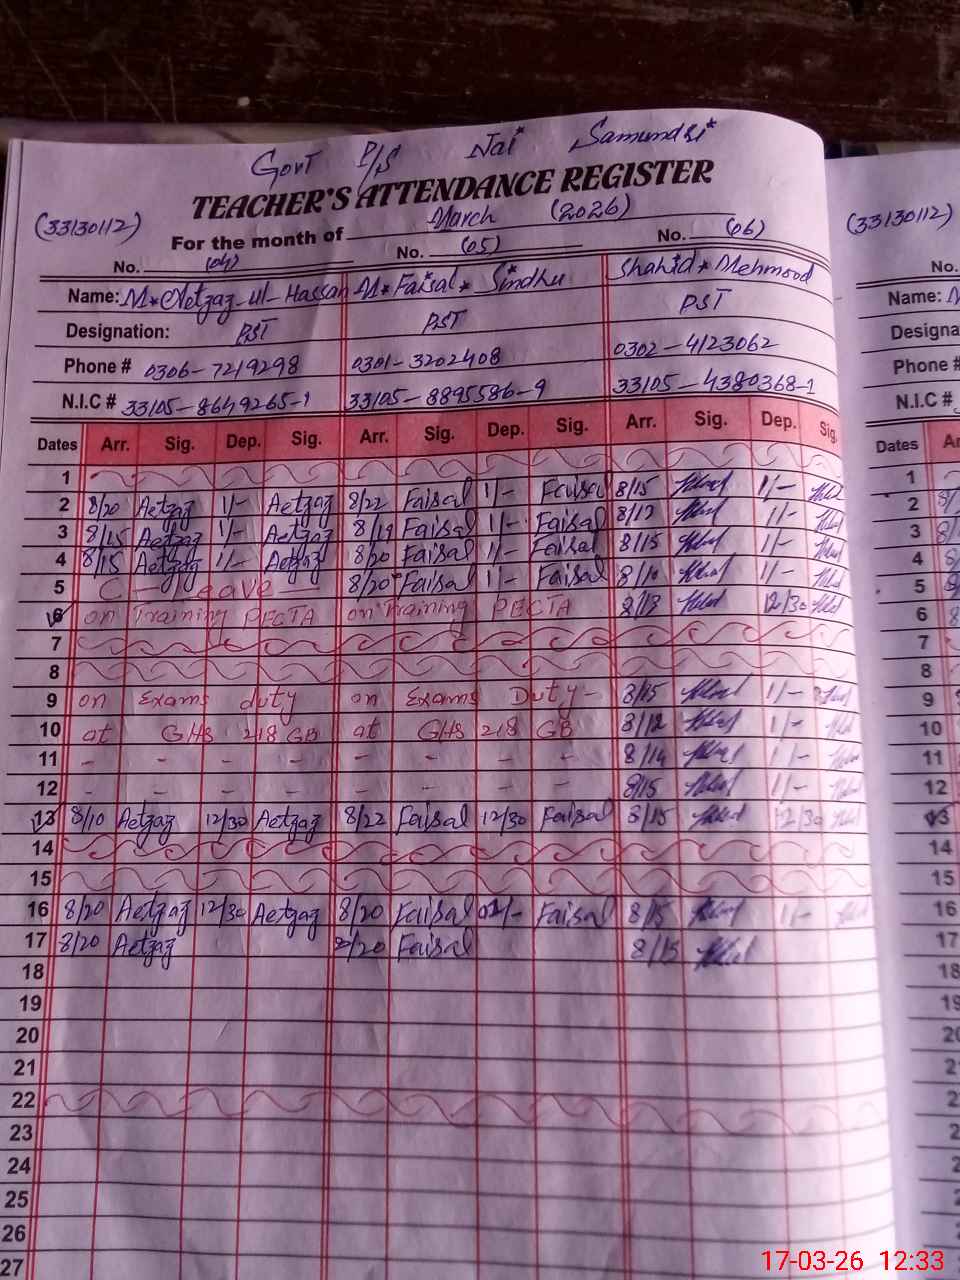 Govt P/S Nai Samundri
TEACHER'S ATTENDANCE REGISTER
(33130112) For the month of March (2026) (33130112)
No. (04) No. (05) No. (06) No.
Name: M. Aetzaz-ul-Hassan M. Faisal Sindhu Shahid Mehmood Name:
Designation: PST PST PST Designa
Phone # 0306-7219298 0301-3202408 0302-4123062 Phone #
N.I.C # 33105-8649265-1 33105-8895586-9 33105-4380368-1 N.I.C #
Dates Arr. Sig. Dep. Sig. Arr. Sig. Dep. Sig. Arr. Sig. Dep. Sig. Dates
1 1
2 8/20 Aetzaz 1/- Aetzaz 8/22 Faisal 1/- Faisal 8/15 1/- 2
3 8/15 Aetzaz 1/- Aetzaz 8/19 Faisal 1/- Faisal 8/12 1/- 3
4 8/15 Aetzaz 1/- Aetzaz 8/20 Faisal 1/- Faisal 8/15 1/- 4
5 C - Leave 8/20 Faisal 1/- Faisal 8/10 1/- 5
6 on Training PECTA on Training PECTA 8/13 12/30 6
7 7
8 8
9 on Exams duty on Exams Duty- 8/15 1/- 9
10 at GHS 218 GB at GHS 218 GB 8/12 1/- 10
11 - - - - - - - - 8/14 1/- 11
12 - - - - - - - - 8/15 1/- 12
13 8/10 Aetzaz 12/30 Aetzaz 8/22 Faisal 12/30 Faisal 8/15 12/30 13
14 14
15 15
16 8/20 Aetzaz 12/30 Aetzaz 8/20 Faisal 01/- Faisal 8/15 1/- 16
17 8/20 Aetzaz 8/20 Faisal 8/15 17
18 18
19 19
20
21
22
23
24
25
26
27
17-03-26 12:33